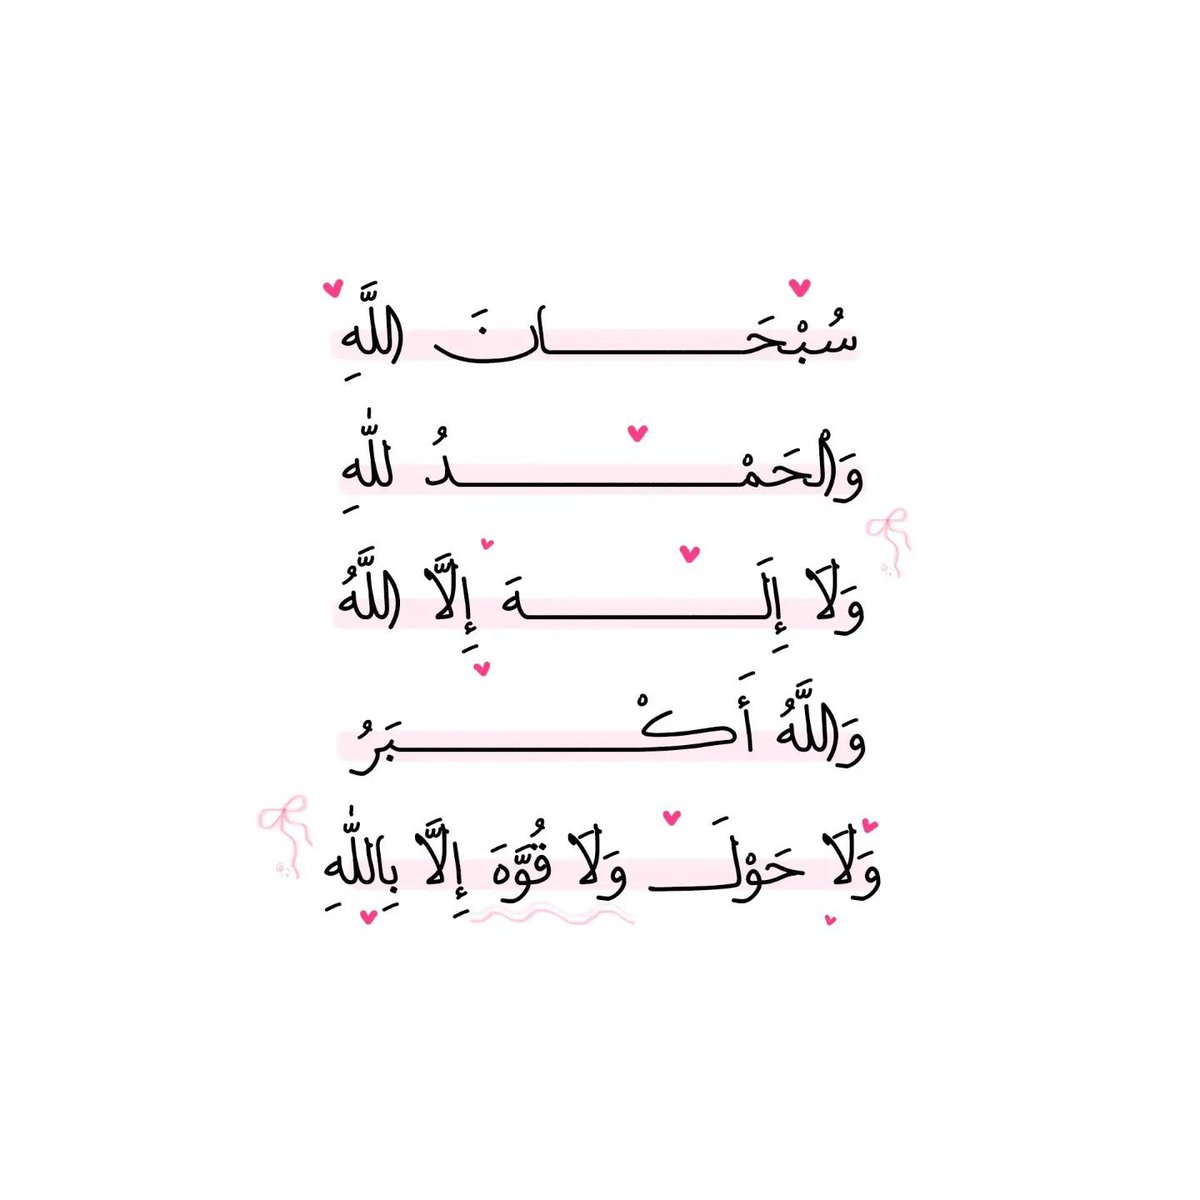 سُبْحَـــــــــــانَ اللَّهِ
وَالْحَمْـــــــــــــدُ للّٰهِ
وَلَا إِلَـــــــــــــهَ إِلَّا اللَّهُ
وَاللَّهُ أَكْـــــــــــــبَرُ
وَلَا حَوْلَـــ وَلَا قُوَّهَ إِلَّا بِاللّٰهِ